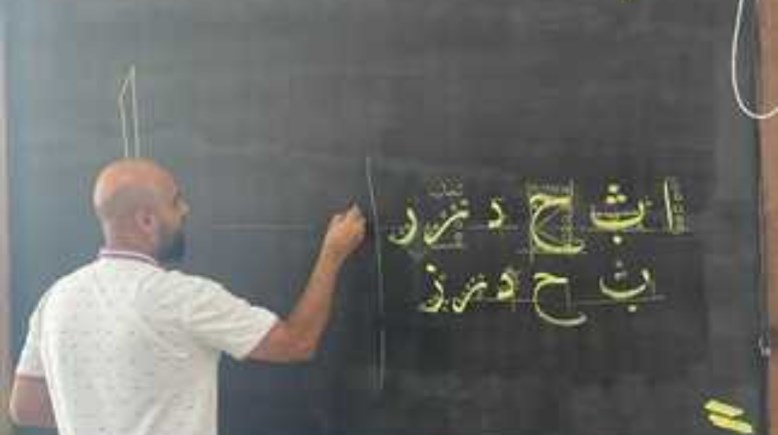 ا ث ح د ز ز
ث ح د ز ز